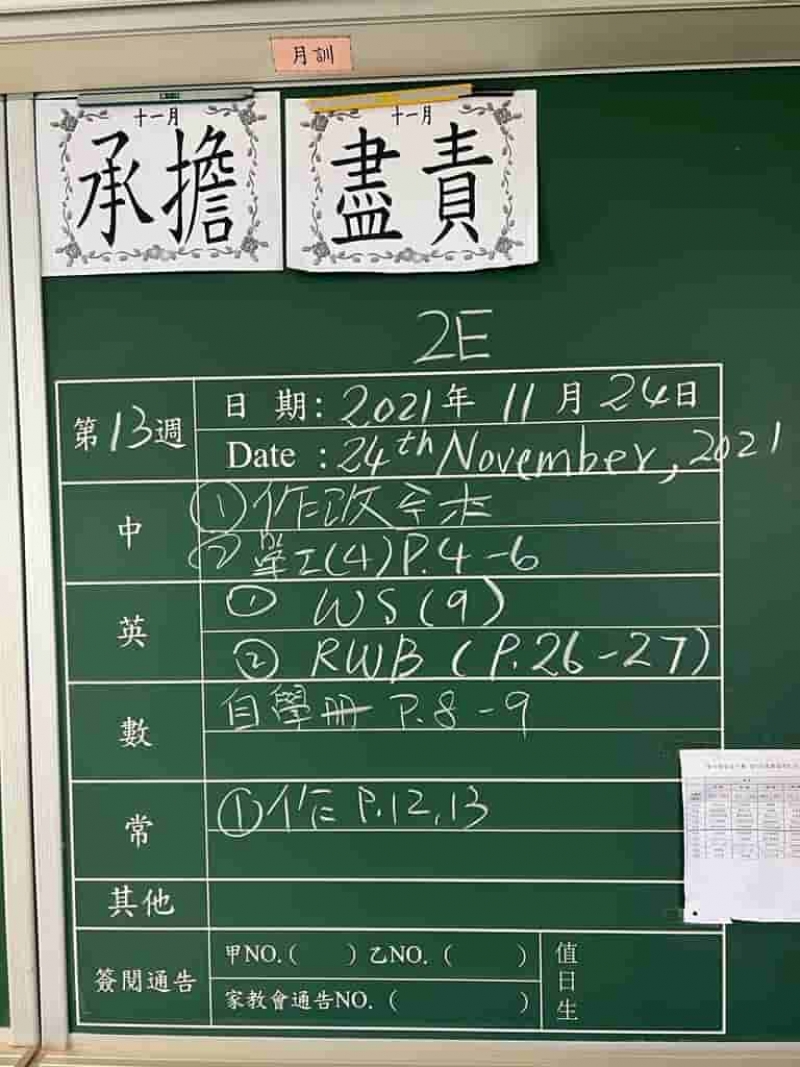 月訓
十一月
承擔
十一月
盡責
2E
第13週
日 期: 2021年 11月 24日
Date : 24th November, 2021
中
① 作改
② 單工(4) P.4-6
英
① WS(9)
② RWB (P.26-27)
數
自學冊 P.8-9
常
① 作 P.12,13
其他
簽閱通告
甲NO.( ) 乙NO.( )
家教會通告NO.( )
值日生